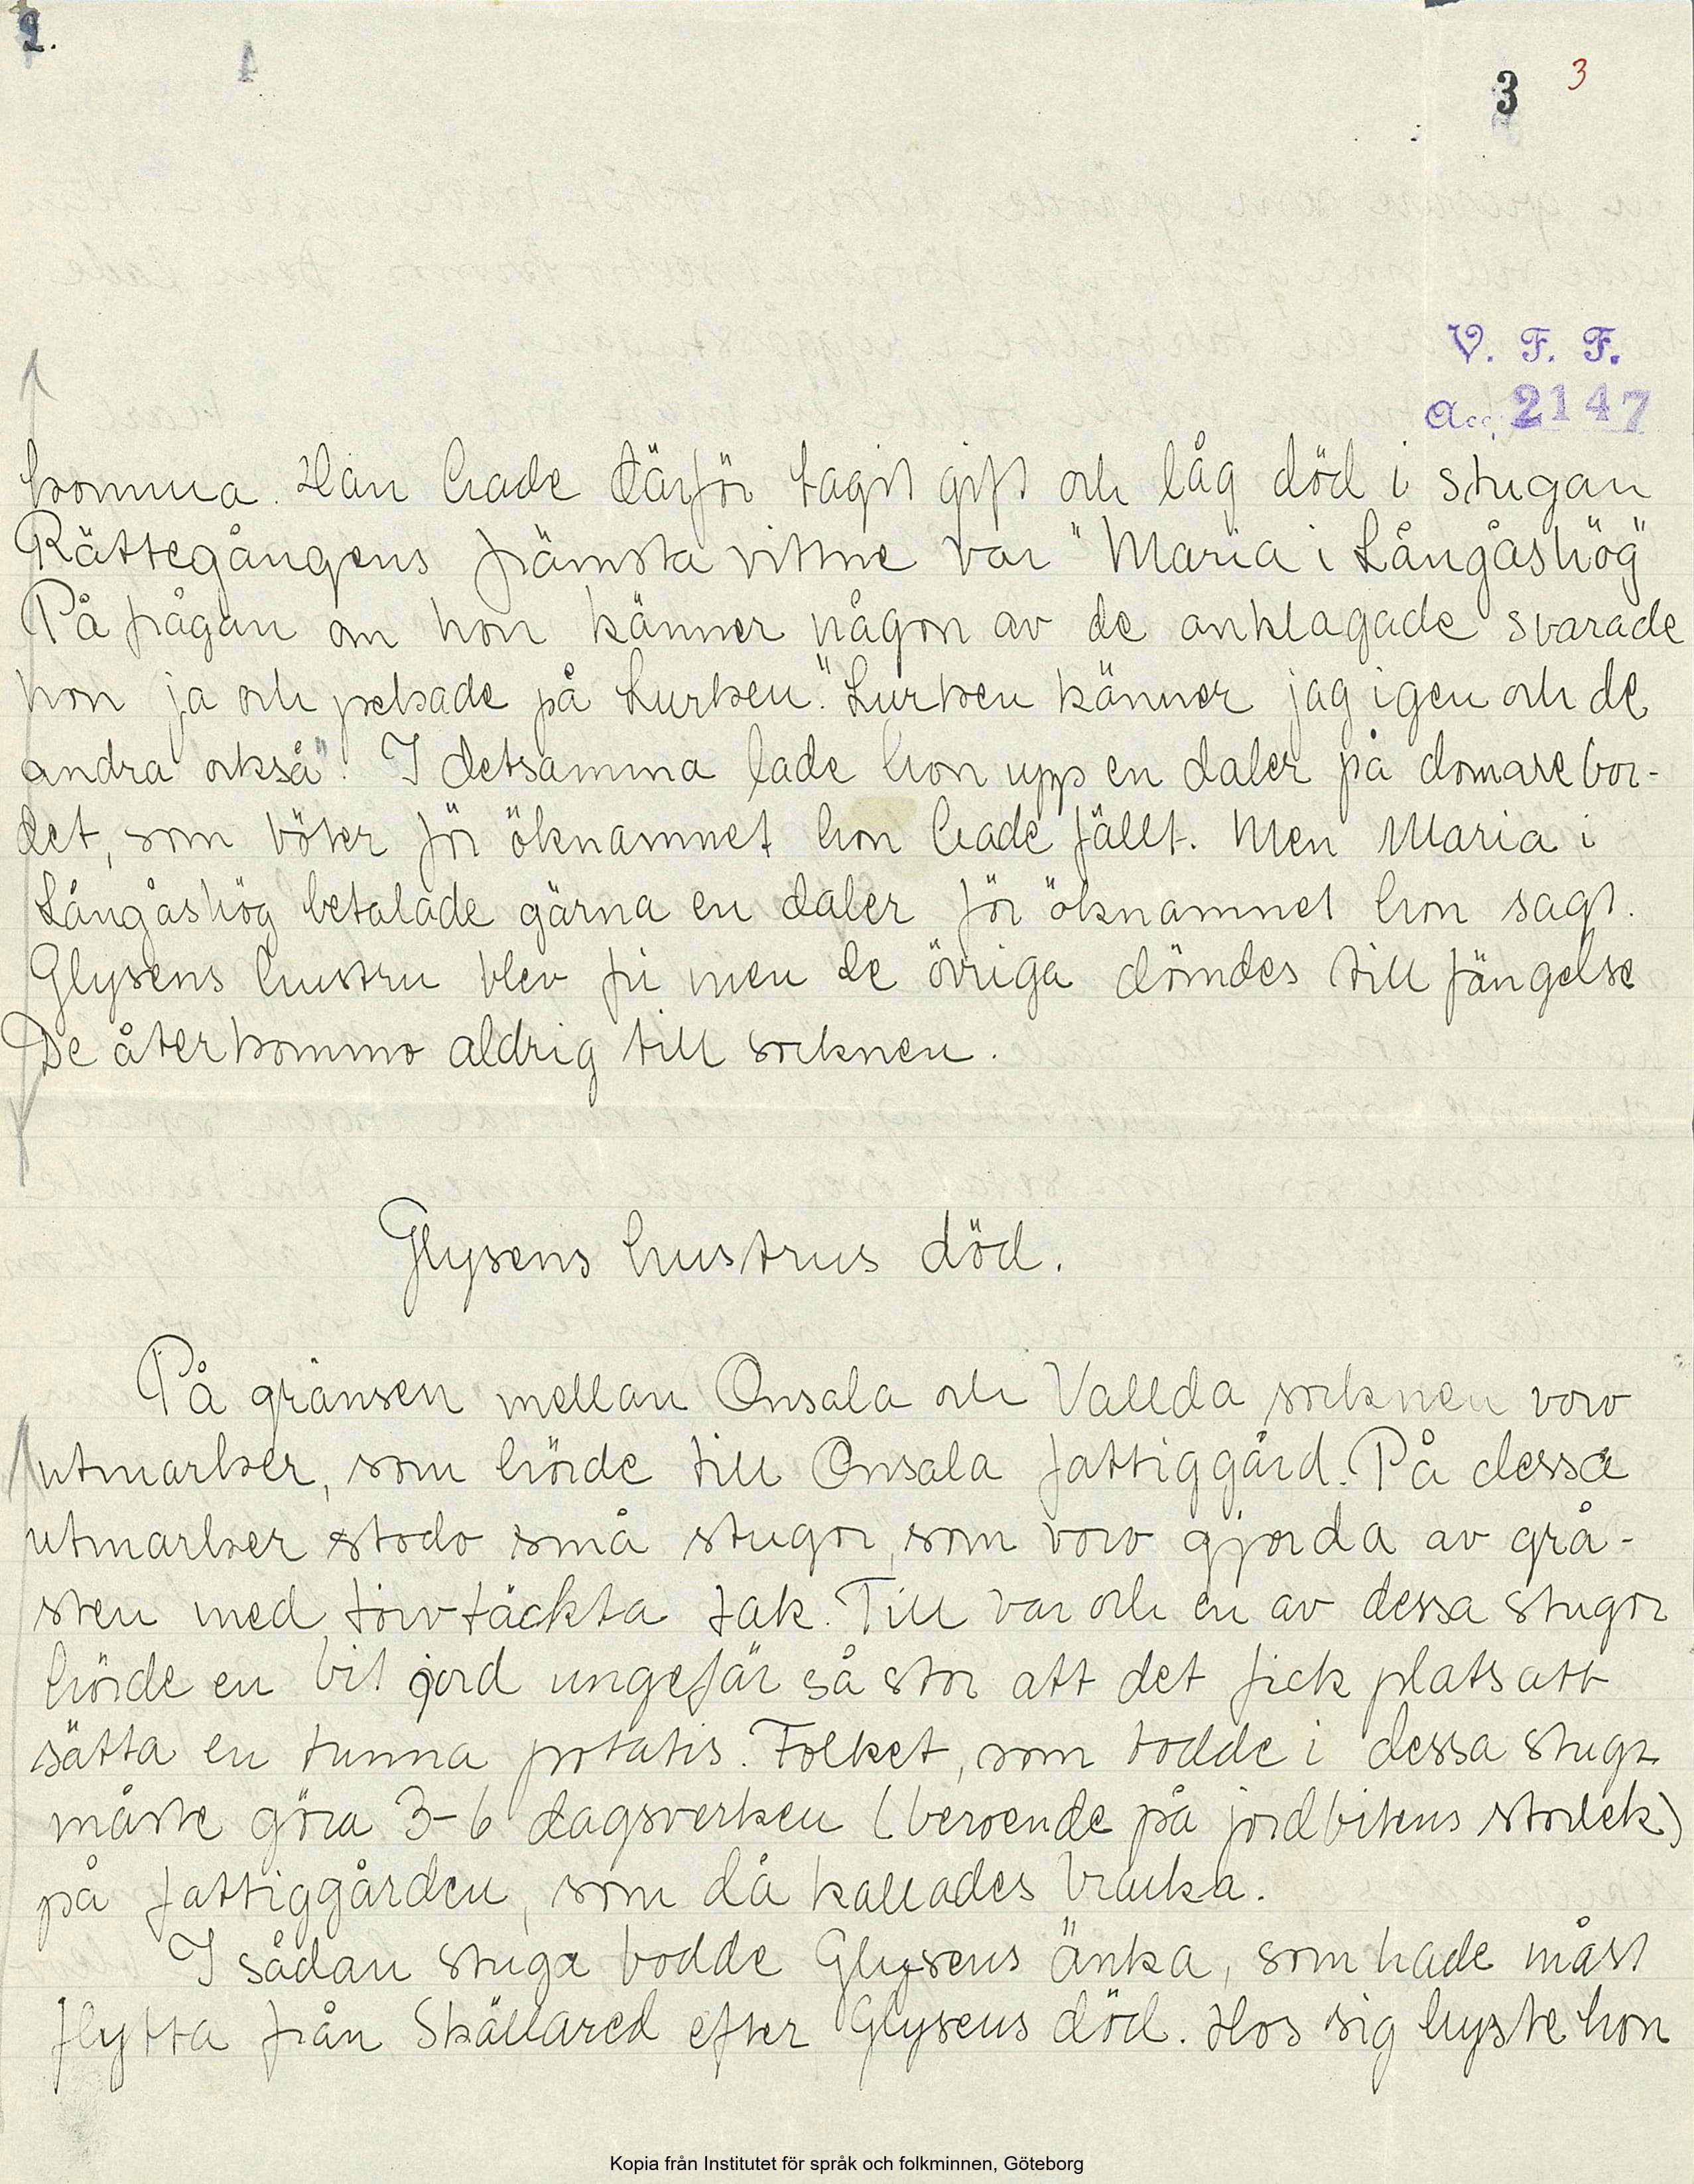 2.
3 3
V. F. F.
Acc. 2147
komma. Han hade därför tagit gift och låg död i stugan
Rättegångens främsta vittne var "Maria i Långåshög"
På frågan om hon känner någon av de anklagade svarade
hon ja och pekade på Lurken. "Lurken känner jag igen och de
andra också". I detsamma lade hon upp en daler på domarebor-
det, som böter för öknamnet hon hade fällt. Men Maria i
Långåshög betalade gärna en daler för öknamnet hon sagt.
Glysens hustru blev fri men de övriga dömdes till fängelse
De återkommo aldrig till socknen.
Glysens hustrus död.
På gränsen mellan Onsala och Vallda socknen voro
utmarker, som hörde till Onsala fattiggård. På dessa
utmarker stodo små stugor, som voro gjorda av grå-
sten med torvtäckta tak. Till var och en av dessa stugor
hörde en bit jord ungefär så stor att det fick plats att
sätta en tunna potatis. Folket, som bodde i dessa stugor
måste göra 3-6 dagsverken (beroende på jordbitens storlek)
på fattiggården, som då kallades Bracka.
I sådan stuga bodde Glysens änka, som hade måst
flytta från Skällared efter Glysens död. Hos sig hyste hon
Kopia från Institutet för språk och folkminnen, Göteborg